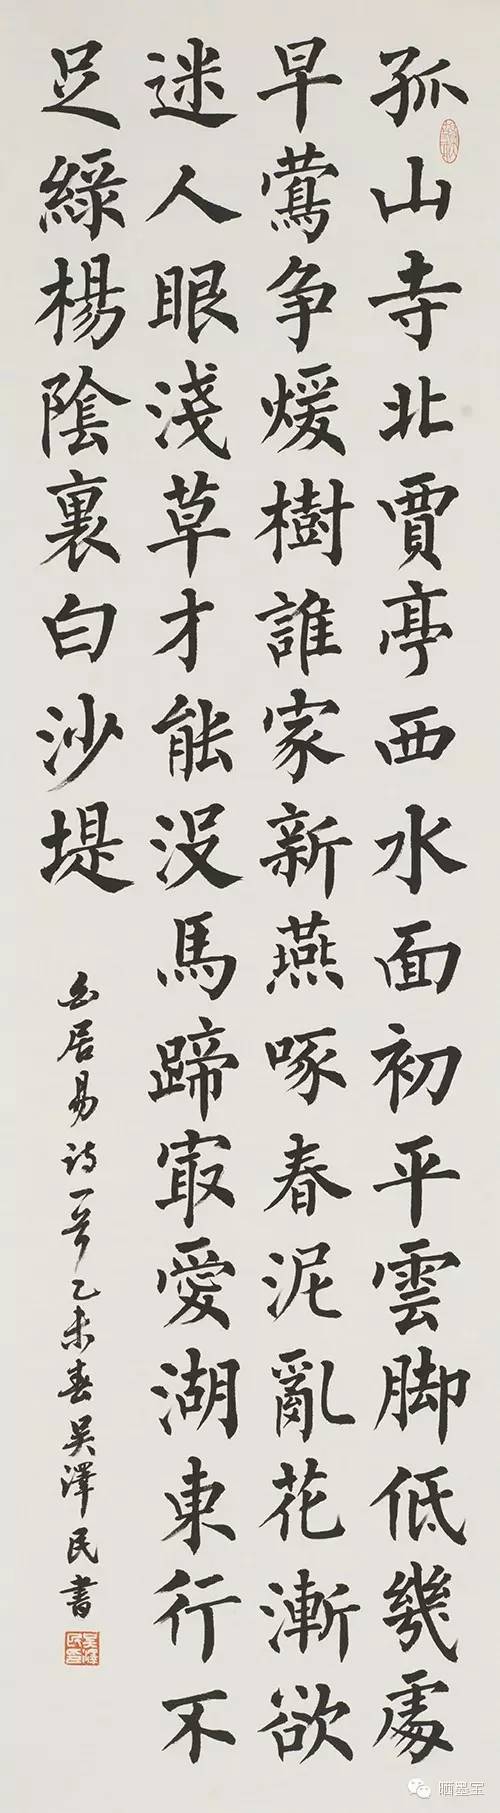 孤山寺北賈亭西水面初平雲脚低幾處
早鶯争煖樹誰家新燕啄春泥亂花漸欲
迷人眼淺草才能没馬蹄冣愛湖東行不
足綠楊陰裏白沙堤
白居易诗一首乙未春吴澤民書
晒墨宝